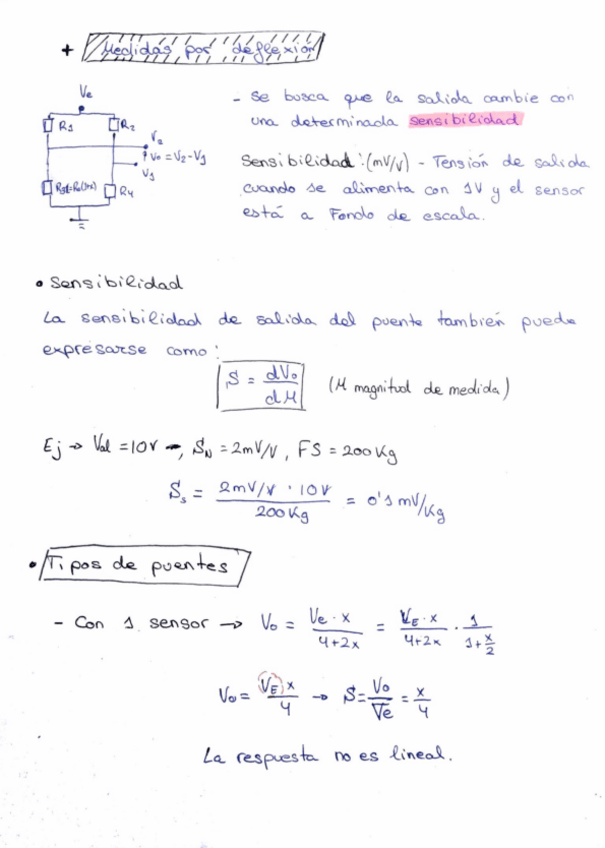 + Medidas por deflexión
Ve
R1 R2
V2
Vo = V2-V1
V1
R4
- Se busca que la salida cambie con
una determinada sensibilidad
Sensibilidad: (mV/V) - Tensión de salida
cuando se alimenta con 1V y el sensor
está a Fondo de escala.
• Sensibilidad
La sensibilidad de salida del puente también puede
expresarse como:
S = dVo / dM (M magnitud de medida)
Ej → Val = 10V →, SN = 2mV/V, FS = 200Kg
Ss = 2mV/V · 10V / 200Kg = 0'1 mV/Kg
• Tipos de puentes
- Con 1 sensor → Vo = Ve · x / 4+2x = VE · x / 4+2x · 1 / 1+x/2
Vo = VE x / 4 → S = Vo / Ve = x / 4
La respuesta no es lineal.